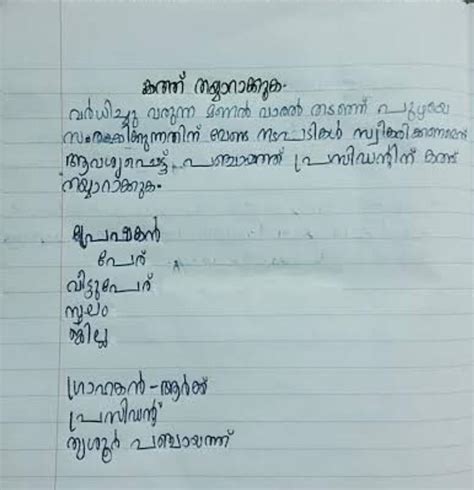 കത്ത് തയ്യാറാക്കുക.
വർധിച്ചു വരുന്ന മണൽ വാരൽ തടഞ്ഞ് പുഴയെ
സംരക്ഷിക്കുന്നതിന് വേണ്ട നടപടികൾ സ്വീകരിക്കണമെന്ന്
ആവശ്യപ്പെട്ട് പഞ്ചായത്ത് പ്രസിഡന്റിന് കത്ത്
തയ്യാറാക്കുക.
പ്രേഷകൻ
പേര്
വീട്ടുപേര്
സ്ഥലം
ജില്ല
ഗ്രാഹകൻ-ആർക്ക്
പ്രസിഡന്റ്
തൃശൂർ പഞ്ചായത്ത്